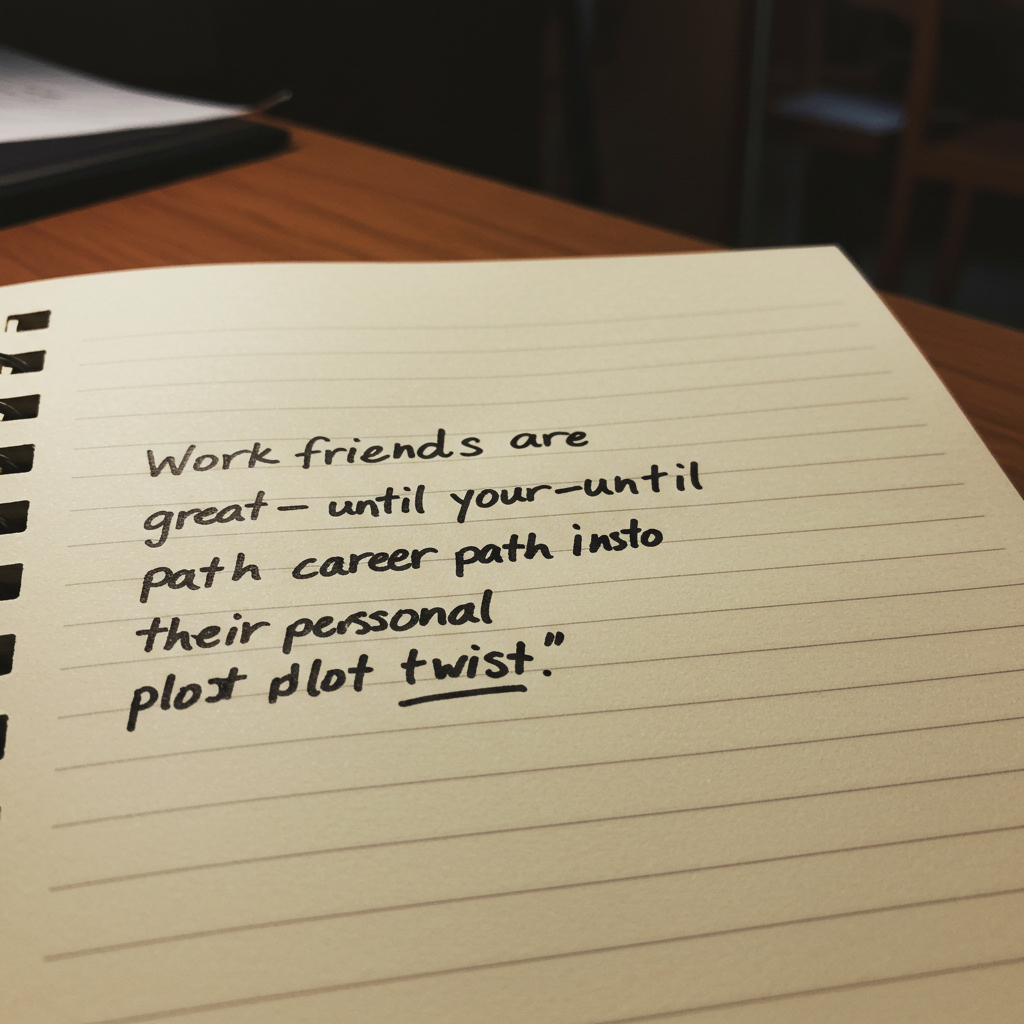 Work friends are
great— until your—until
path career path insto
their perssonal
plot twist."